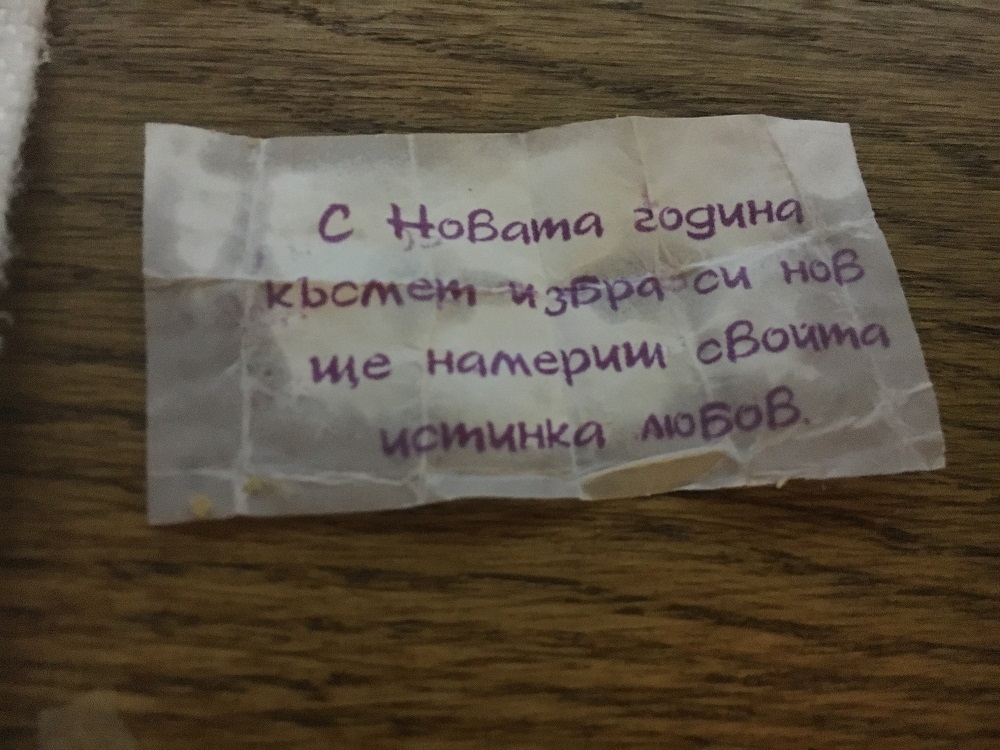 С Новата година
късмет избра си нов
ще намериш свойта
истинка любов.